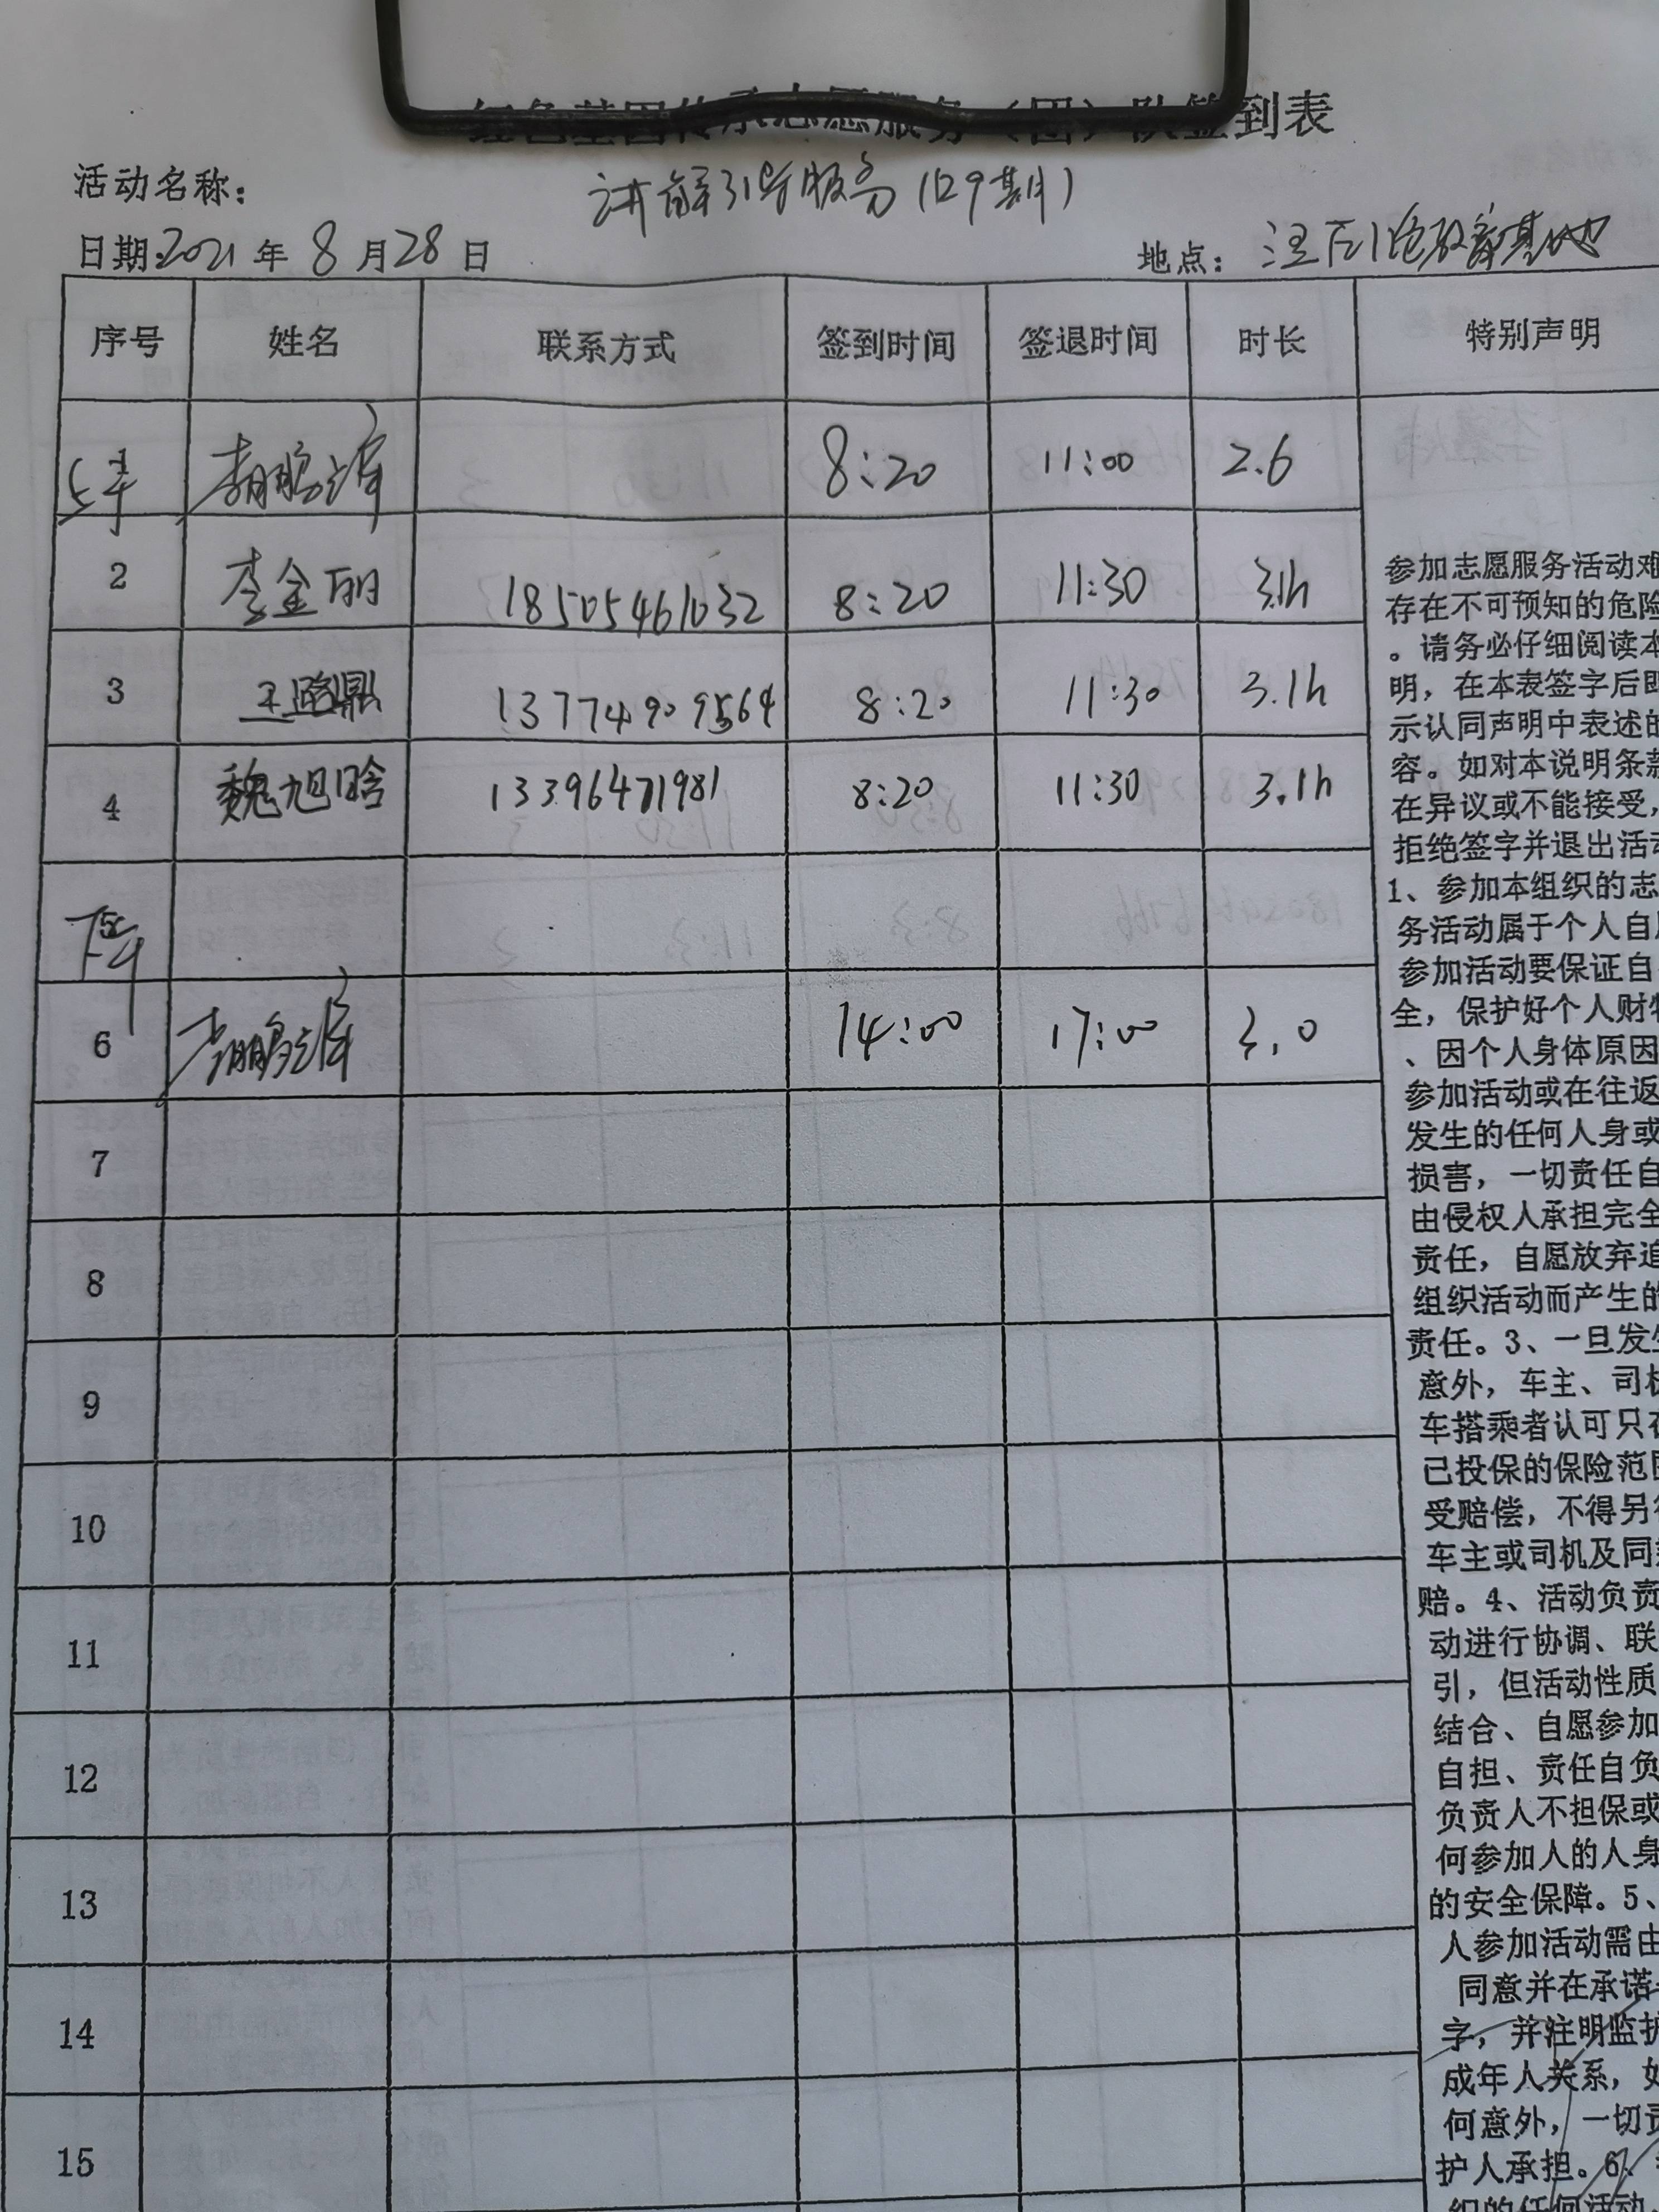 红色基因传承志愿服务(团)队签到表
活动名称: 讲解引导服务(129期)
日期:2021年8月28日 地点: 教育基地
序号 姓名 联系方式 签到时间 签退时间 时长 特别声明
1 上午 8:20 11:00 2.6
2 李金丽 18505461032 8:20 11:30 3.1h
3 13774909564 8:20 11:30 3.1h
4 魏旭晗 13396471981 8:20 11:30 3.1h
5 下午
6 14:00 17:00 3.0
7
8
9
10
11
12
13
14
15
参加志愿服务活动难
存在不可预知的危险
。请务必仔细阅读本
明,在本表签字后即
示认同声明中表述的
容。如对本说明条款
在异议或不能接受,
拒绝签字并退出活动
1、参加本组织的志
务活动属于个人自
参加活动要保证自
全,保护好个人财物
、因个人身体原因
参加活动或在往返
发生的任何人身或
损害,一切责任自
由侵权人承担完全
责任,自愿放弃追
组织活动而产生的
责任。3、一旦发生
意外,车主、司机
车搭乘者认可只在
已投保的保险范围
受赔偿,不得另行
车主或司机及同
赔。4、活动负责
动进行协调、联
引,但活动性质
结合、自愿参加
自担、责任自负
负责人不担保或
何参加人的人身
的安全保障。5、
人参加活动需由
同意并在承诺
字,并注明监护
成年人关系,如
何意外,一切责
护人承担。6、
织的任何活动